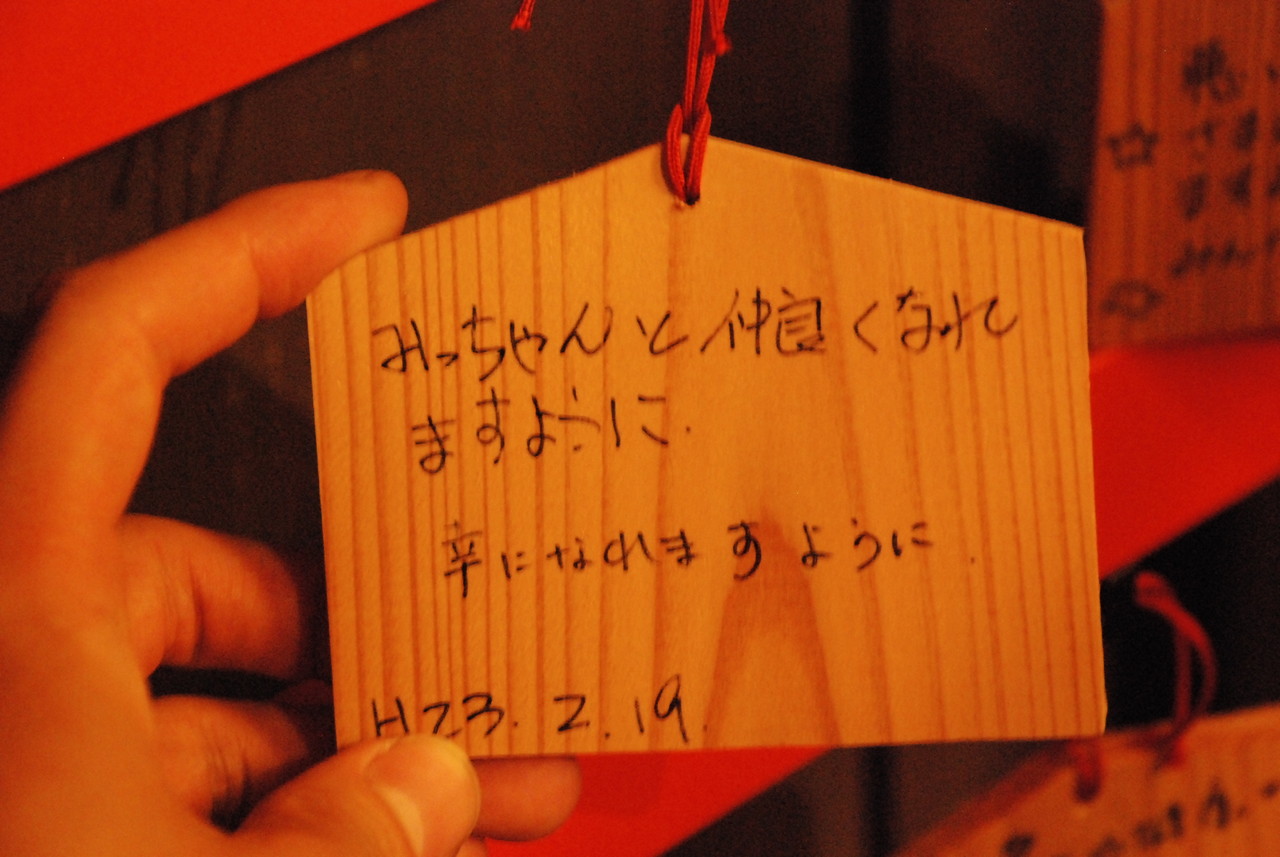 みっちゃんと仲良くなれ
ますように.
幸になれますように.
H23.2.19.